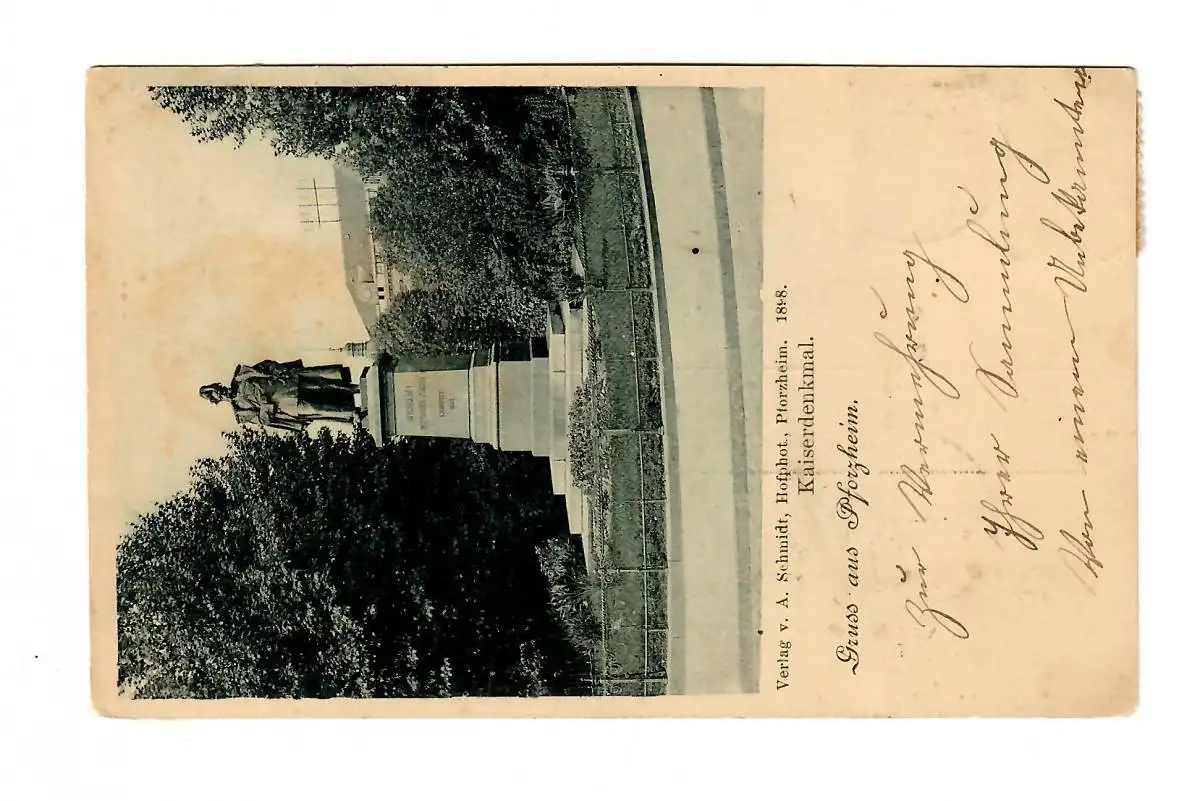 Verlag v. A. Schmidt, Hofphot., Pforzheim. 1898.
Kaiserdenkmal.
Gruss aus Pforzheim.
Zur Vermehrung
Ihrer Sammlung
Von einem Unbekannten